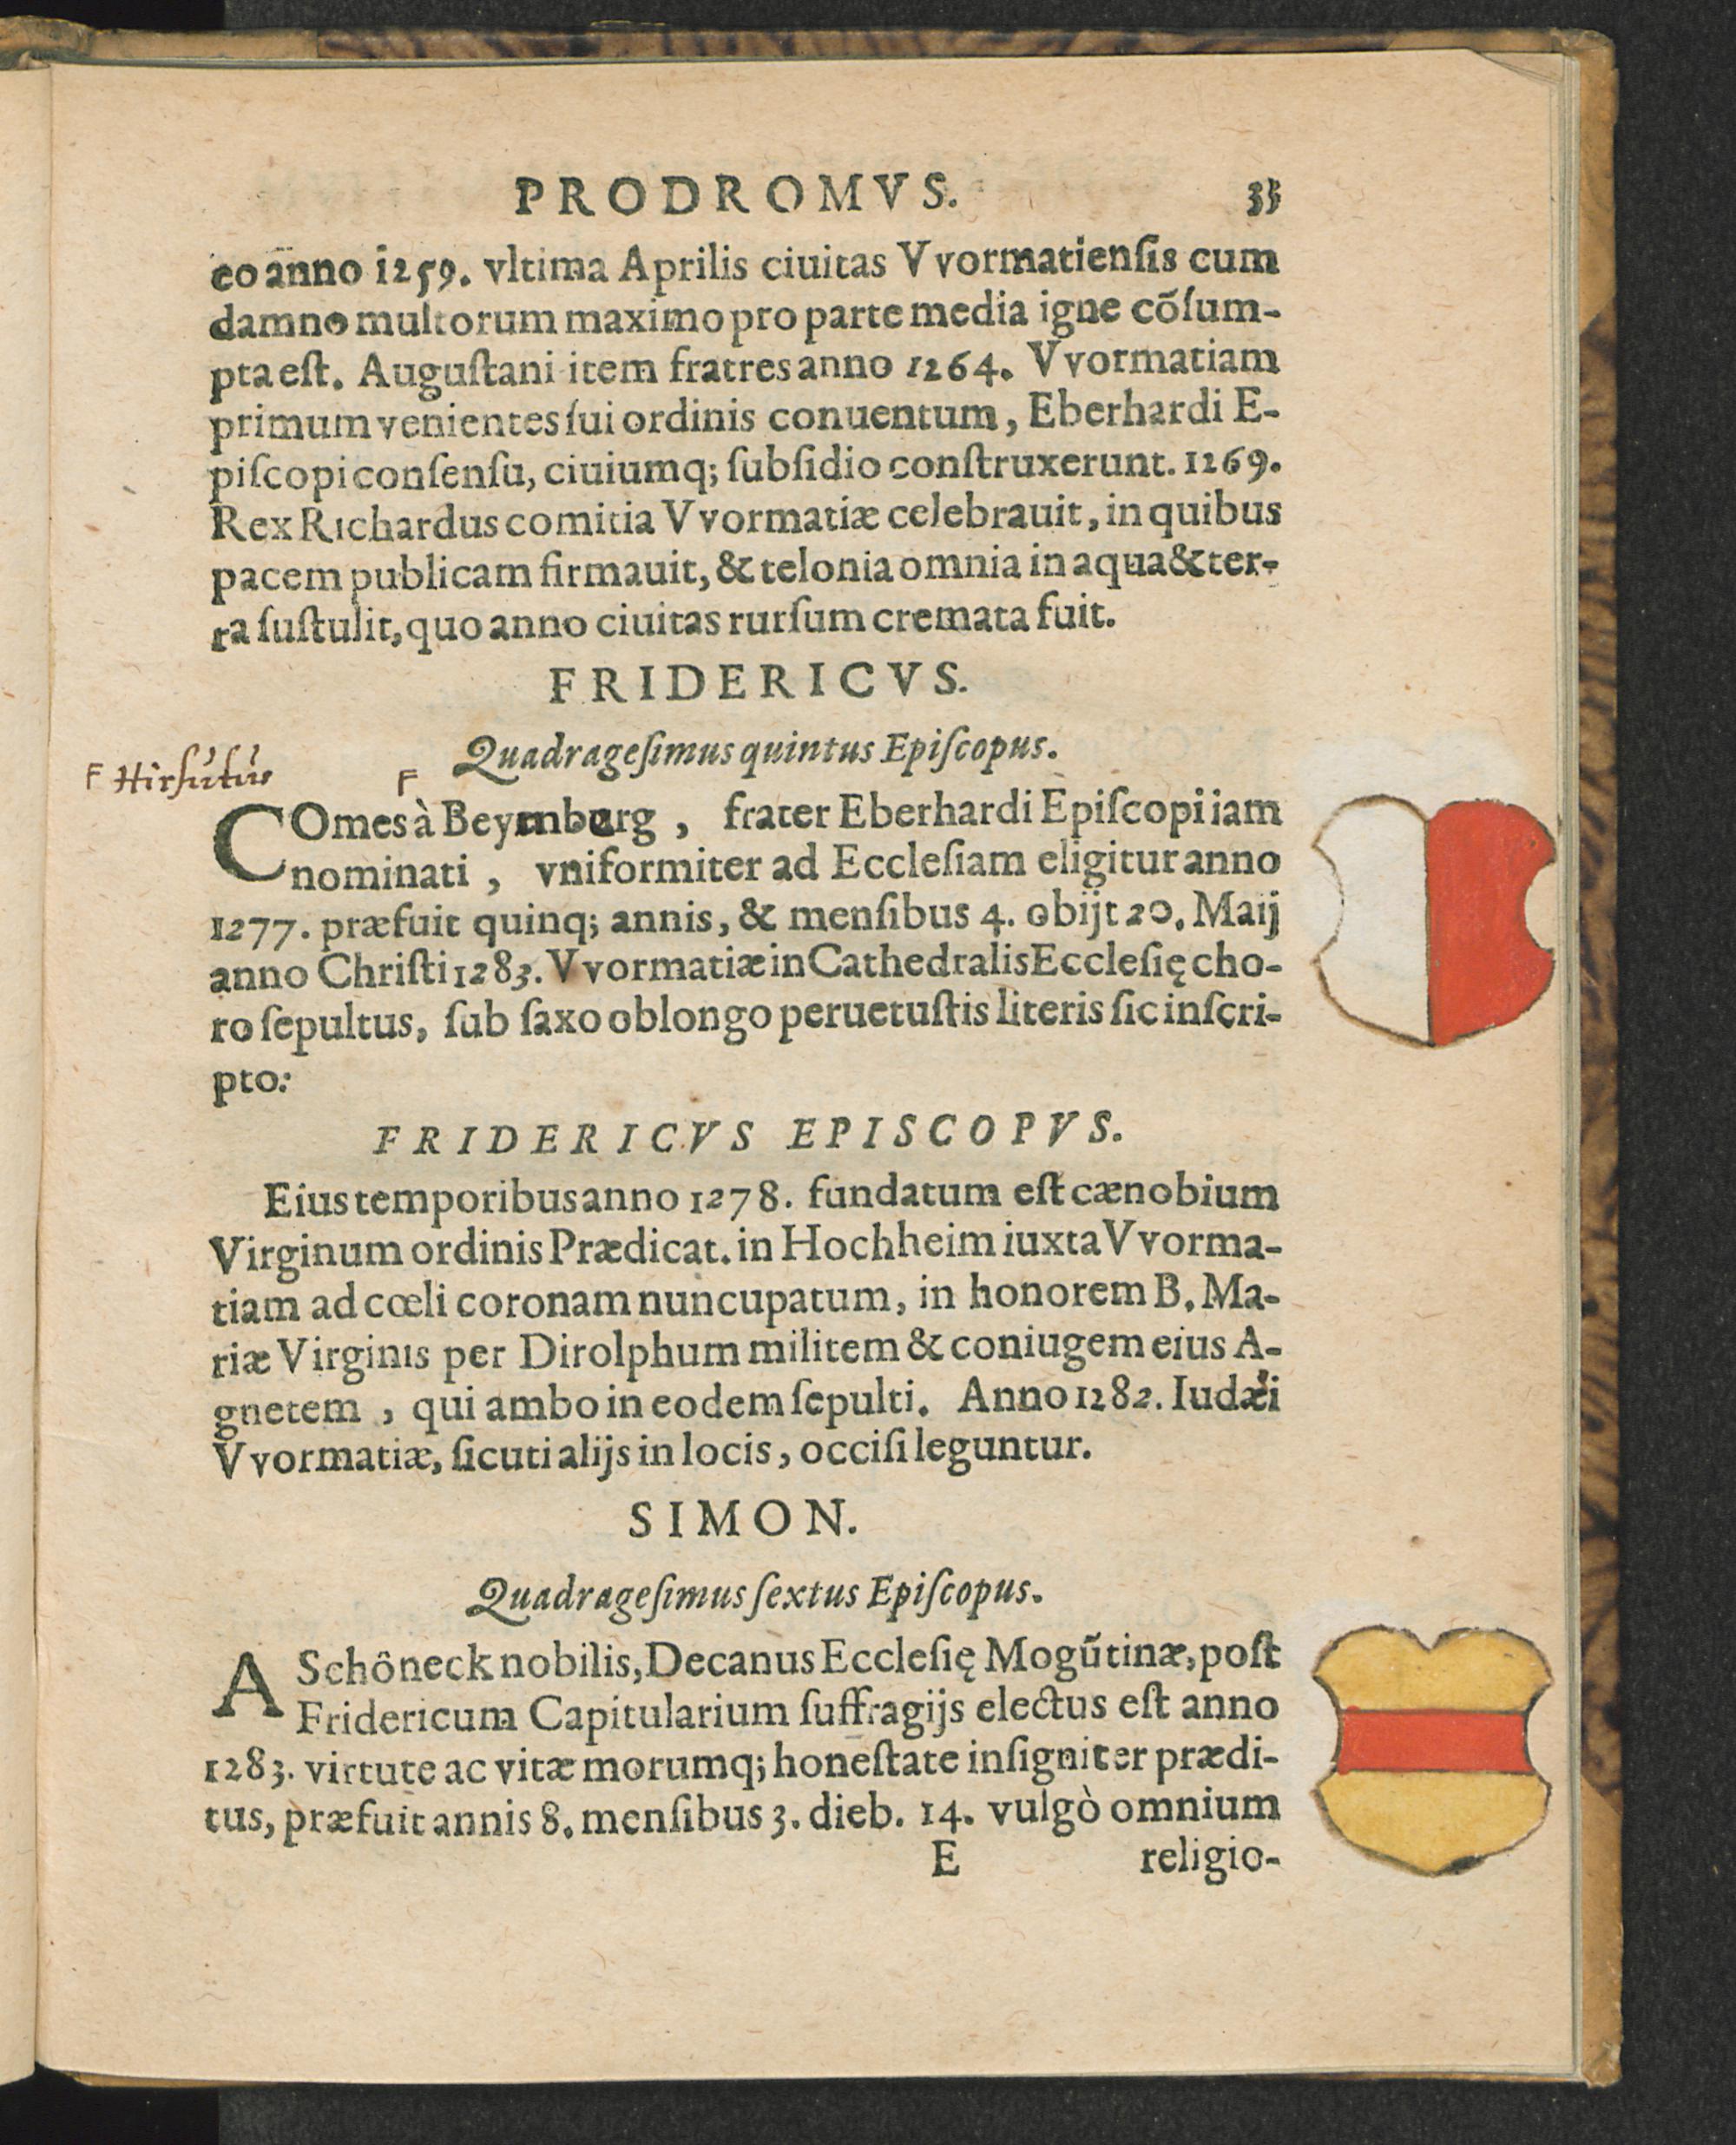 PRODROMVS. 33
eo anno 1259. vltima Aprilis ciuitas VVormatienſis cum
damno multorum maximo pro parte media igne cõſum-
pta eſt. Auguſtani item fratres anno 1264. VVormatiam
primum venientes ſui ordinis conuentum, Eberhardi E-
piſcopi conſenſu, ciuiumq; ſubſidio conſtruxerunt. 1269.
Rex Richardus comitia VVormatiæ celebrauit, in quibus
pacem publicam firmauit, & telonia omnia in aqua & ter-
ra ſuſtulit, quo anno ciuitas rurſum cremata fuit.
FRIDERICVS.
Quadrageſimus quintus Epiſcopus.
F Hirſutus
F
COmes à Beymburg, frater Eberhardi Epiſcopi iam
nominati, vniformiter ad Eccleſiam eligitur anno
1277. præfuit quinq; annis, & menſibus 4. obijt 20. Maij
anno Chriſti 1283. VVormatiæ in Cathedralis Eccleſię cho-
ro ſepultus, ſub ſaxo oblongo peruetuſtis literis ſic inſcri-
pto:
FRIDERICVS EPISCOPVS.
Eius temporibus anno 1278. fundatum eſt cænobium
Virginum ordinis Prædicat. in Hochheim iuxta VVorma-
tiam ad cœli coronam nuncupatum, in honorem B. Ma-
riæ Virginis per Dirolphum militem & coniugem eius A-
gnetem, qui ambo in eodem ſepulti. Anno 1282. Iudæi
VVormatiæ, ſicuti alijs in locis, occiſi leguntur.
SIMON.
Quadrageſimus ſextus Epiſcopus.
A Schôneck nobilis, Decanus Eccleſię Mogũtinæ, poſt
Fridericum Capitularium ſuffragijs electus eſt anno
1283. virtute ac vitæ morumq; honeſtate inſigniter prædi-
tus, præfuit annis 8. menſibus 3. dieb. 14. vulgò omnium
E religio-